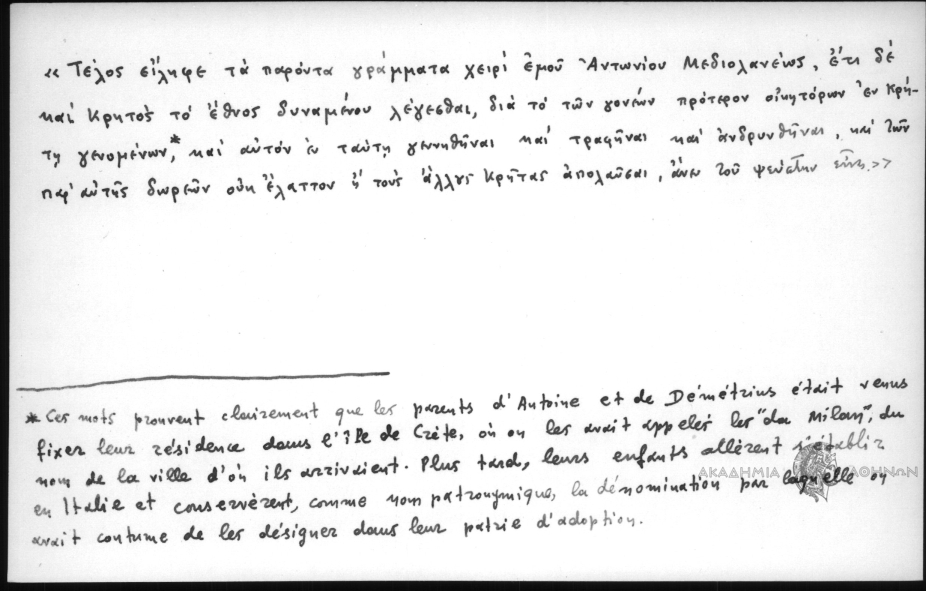 « Τέλος εἴληφε τὰ παρόντα γράμματα χειρὶ ἐμοῦ Ἀντωνίου Μεδιολανέως, ἔτι δὲ
καὶ Κρητὸς τὸ ἔθνος δυναμένου λέγεσθαι, διὰ τὸ τῶν γονέων πρότερον οἰκητόρων ἐν Κρή-
τῃ γενομένων,* καὶ αὐτὸν ἐν ταύτῃ γεννηθῆναι καὶ τραφῆναι καὶ ἀνδρυνθῆναι, καὶ τῶν
παρ' αὐτῆς δωρεῶν οὐκ ἔλαττον ἢ τοὺς ἄλλους Κρῆτας ἀπολαῦσαι, ἄνευ τοῦ ψεύστην εἶναι.»
* Ces mots prouvent clairement que les parents d'Antoine et de Démétrius était venus
fixer leur résidence dans l'île de Crète, où on les avait appelés les "da Milan", du
nom de la ville d'où ils arrivaient. Plus tard, leurs enfants allèrent s'établir
en Italie et conservèrent, comme nom patronymique, la dénomination par laquelle on
avait coutume de les désigner dans leur patrie d'adoption.
ΑΚΑΔΗΜΙΑ ΑΘΗΝΩΝ